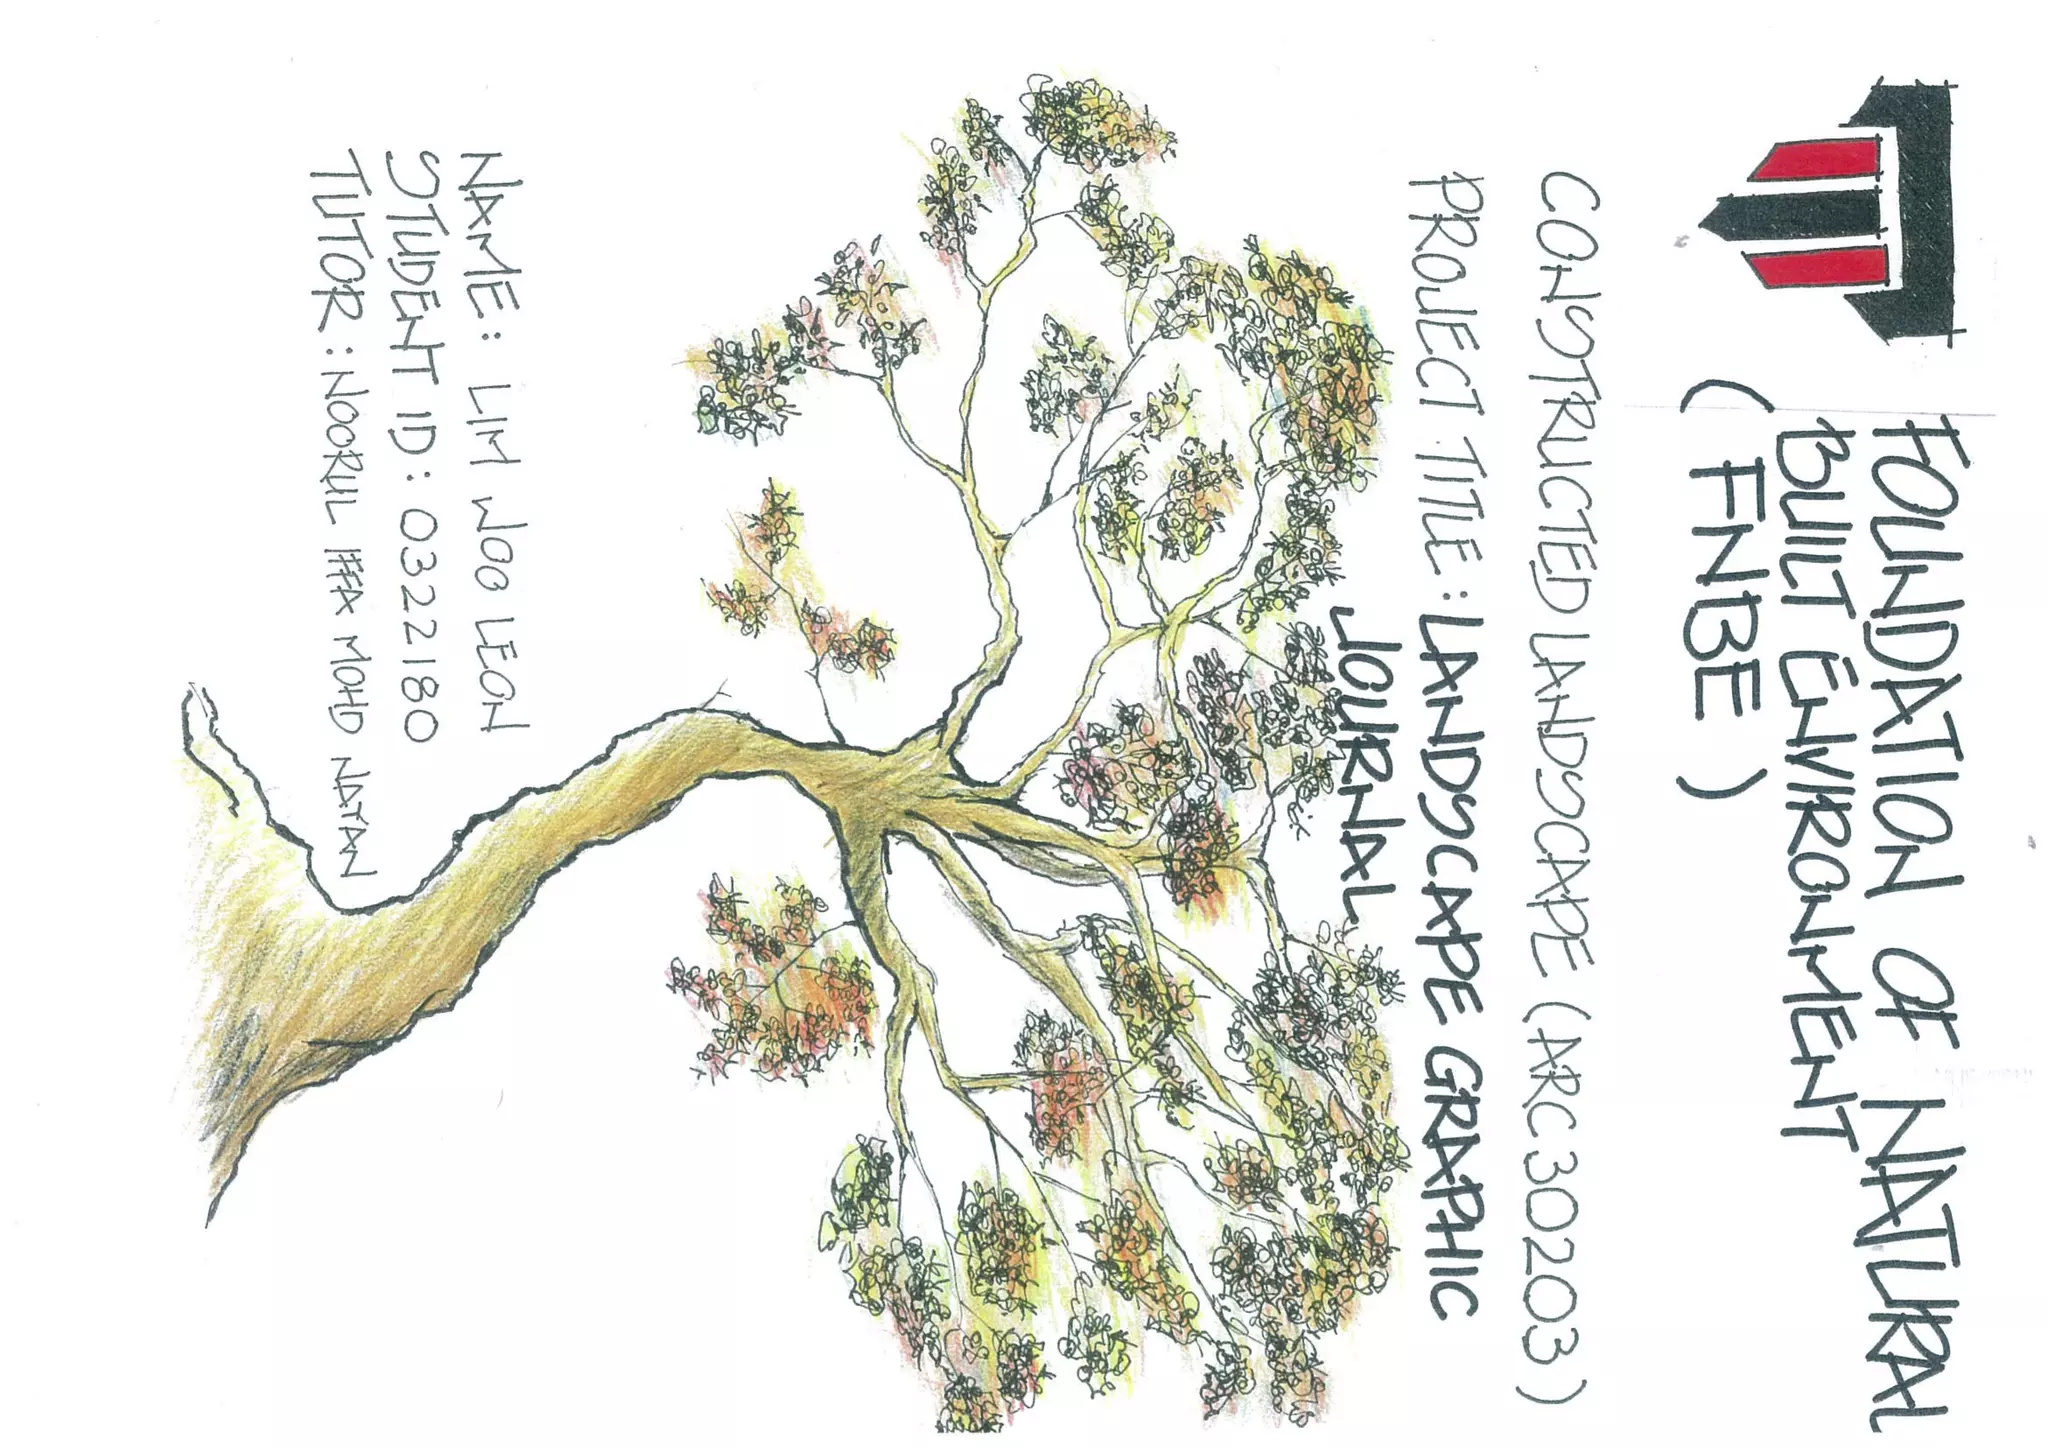 FOUNDATION OF NATURAL
BUILT ENVIRONMENT
(FNBE)
CONSTRUCTED LANDSCAPE (ARC30203)
PROJECT TITLE: LANDSCAPE GRAPHIC
JOURNAL
NAME: LIM WOO LEON
STUDENT ID: 0322180
TUTOR: NOORUL MOHD NATAN